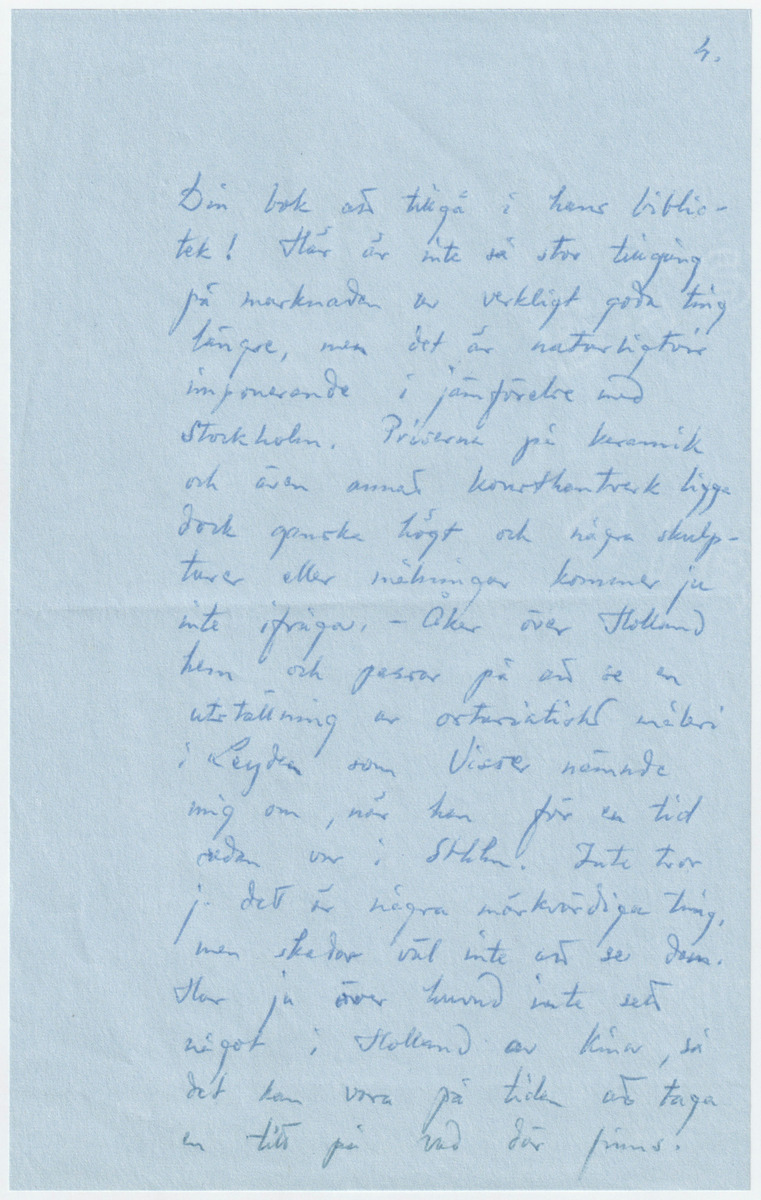 4.
Din bok att tillgå i hans biblio-
tek! Här är inte så stor tillgång
på marknaden av verkligt goda ting
längre, men det är naturligtvis
imponerande i jämförelse med
Stockholm. Priserna på keramik
och även annat konsthantverk ligga
dock ganska högt och några skulp-
turer eller målningar kommer ju
inte ifråga. - Åker över Holland
hem och passar på att se en
utställning av ostasiatiskt måleri
i Leyden som Visser nämnde
mig om, när han för en tid
sedan var i Sthlm. Inte tror
j. det är några märkvärdiga ting,
men skadar väl inte att se dem.
Har ju över huvud inte sett
något i Holland av Kina, så
det kan vara på tiden att taga
en titt på vad där finns.